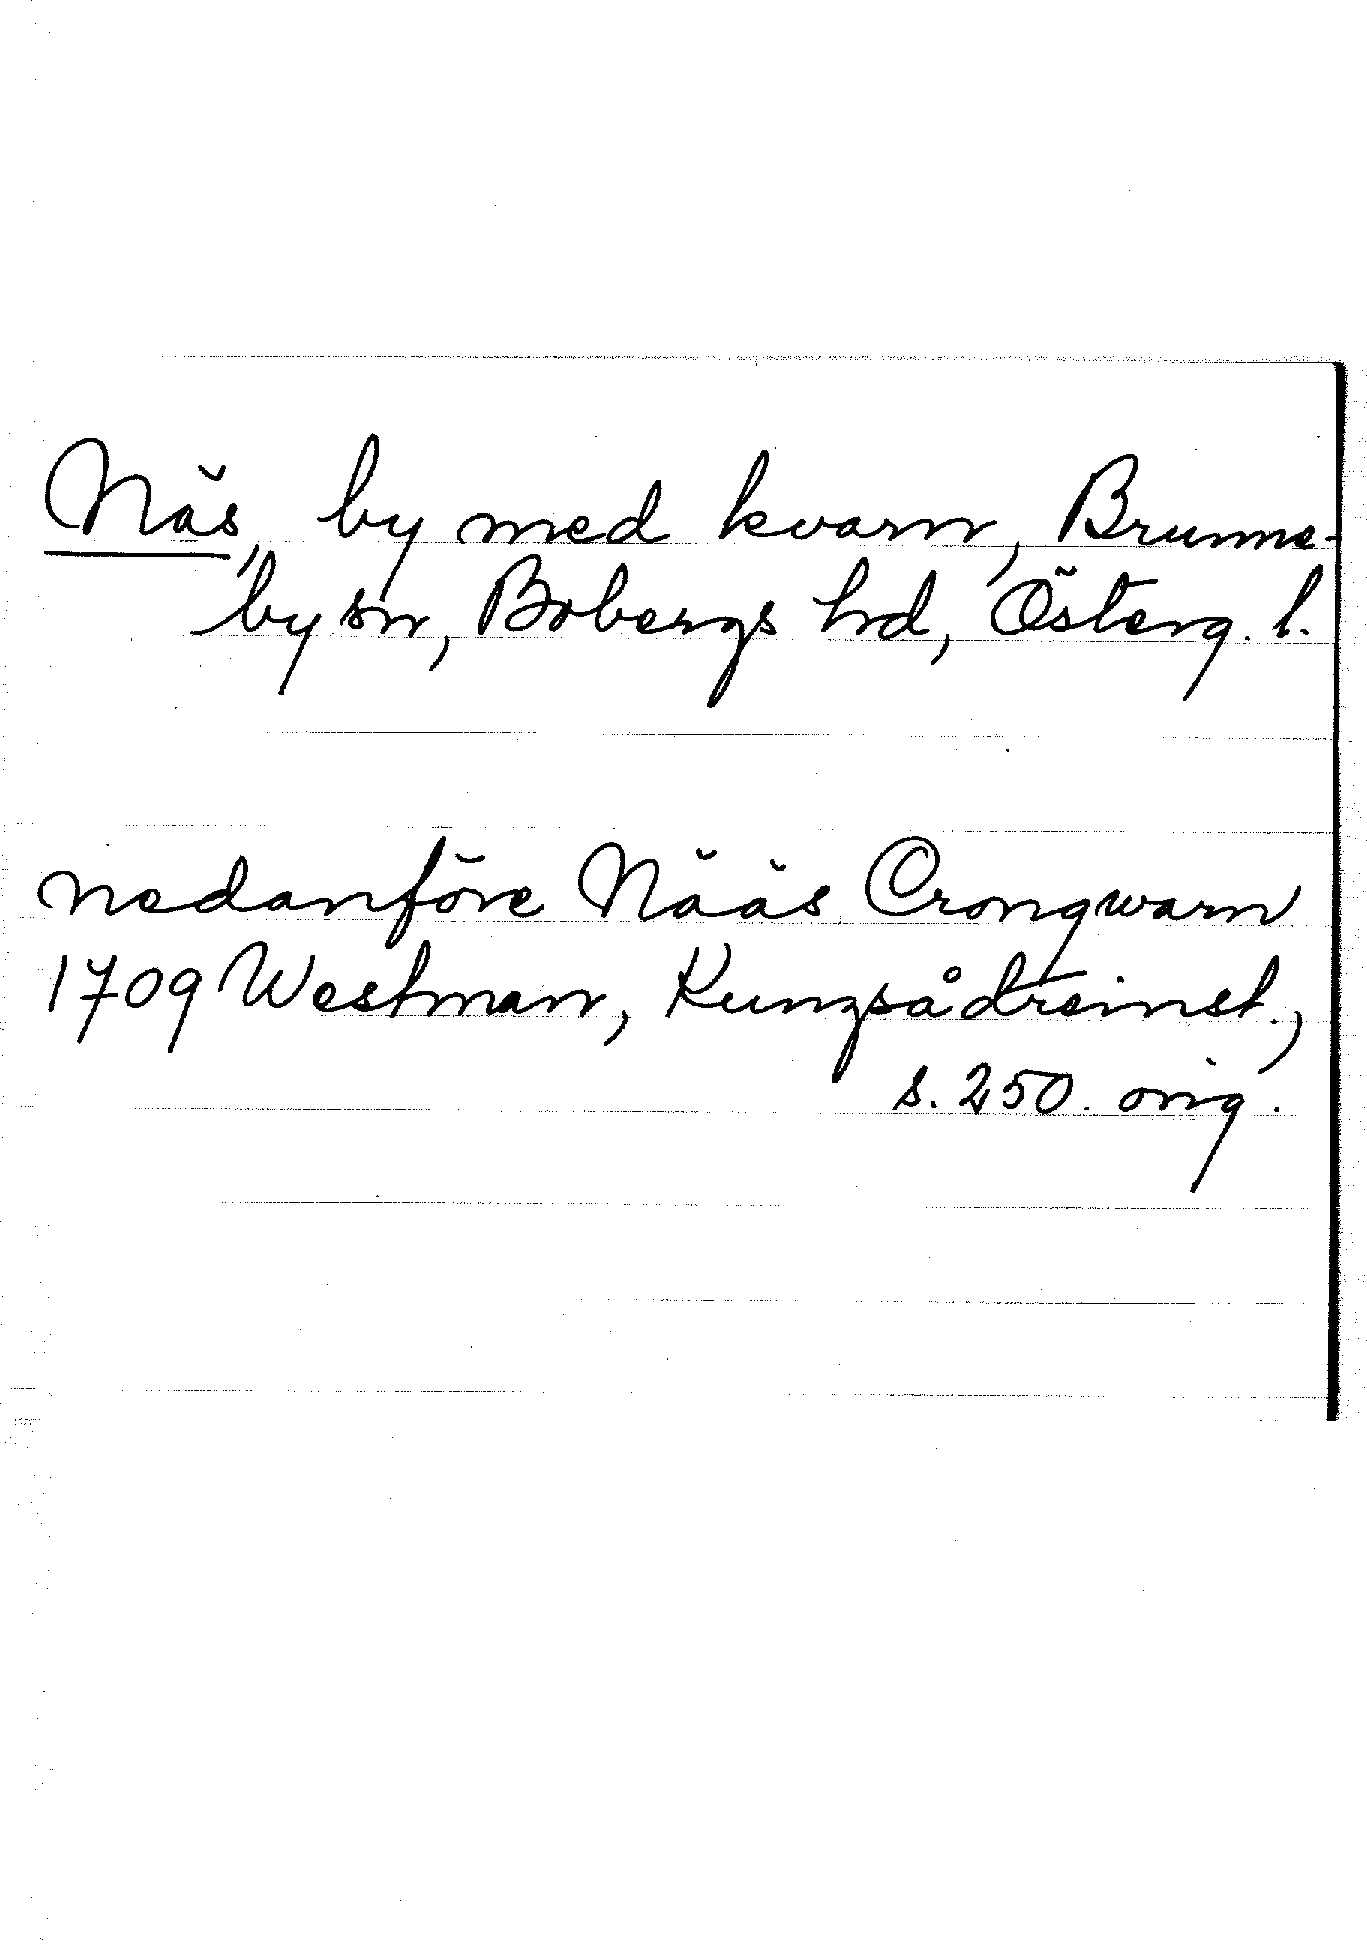 Näs, by med kvarn, Brunne-
by sn, Bobergs hd, Österg. l.
nedanföre Nääs Crongwarn
1709 Westman, Kungsådreinst.,
s. 250. orig.